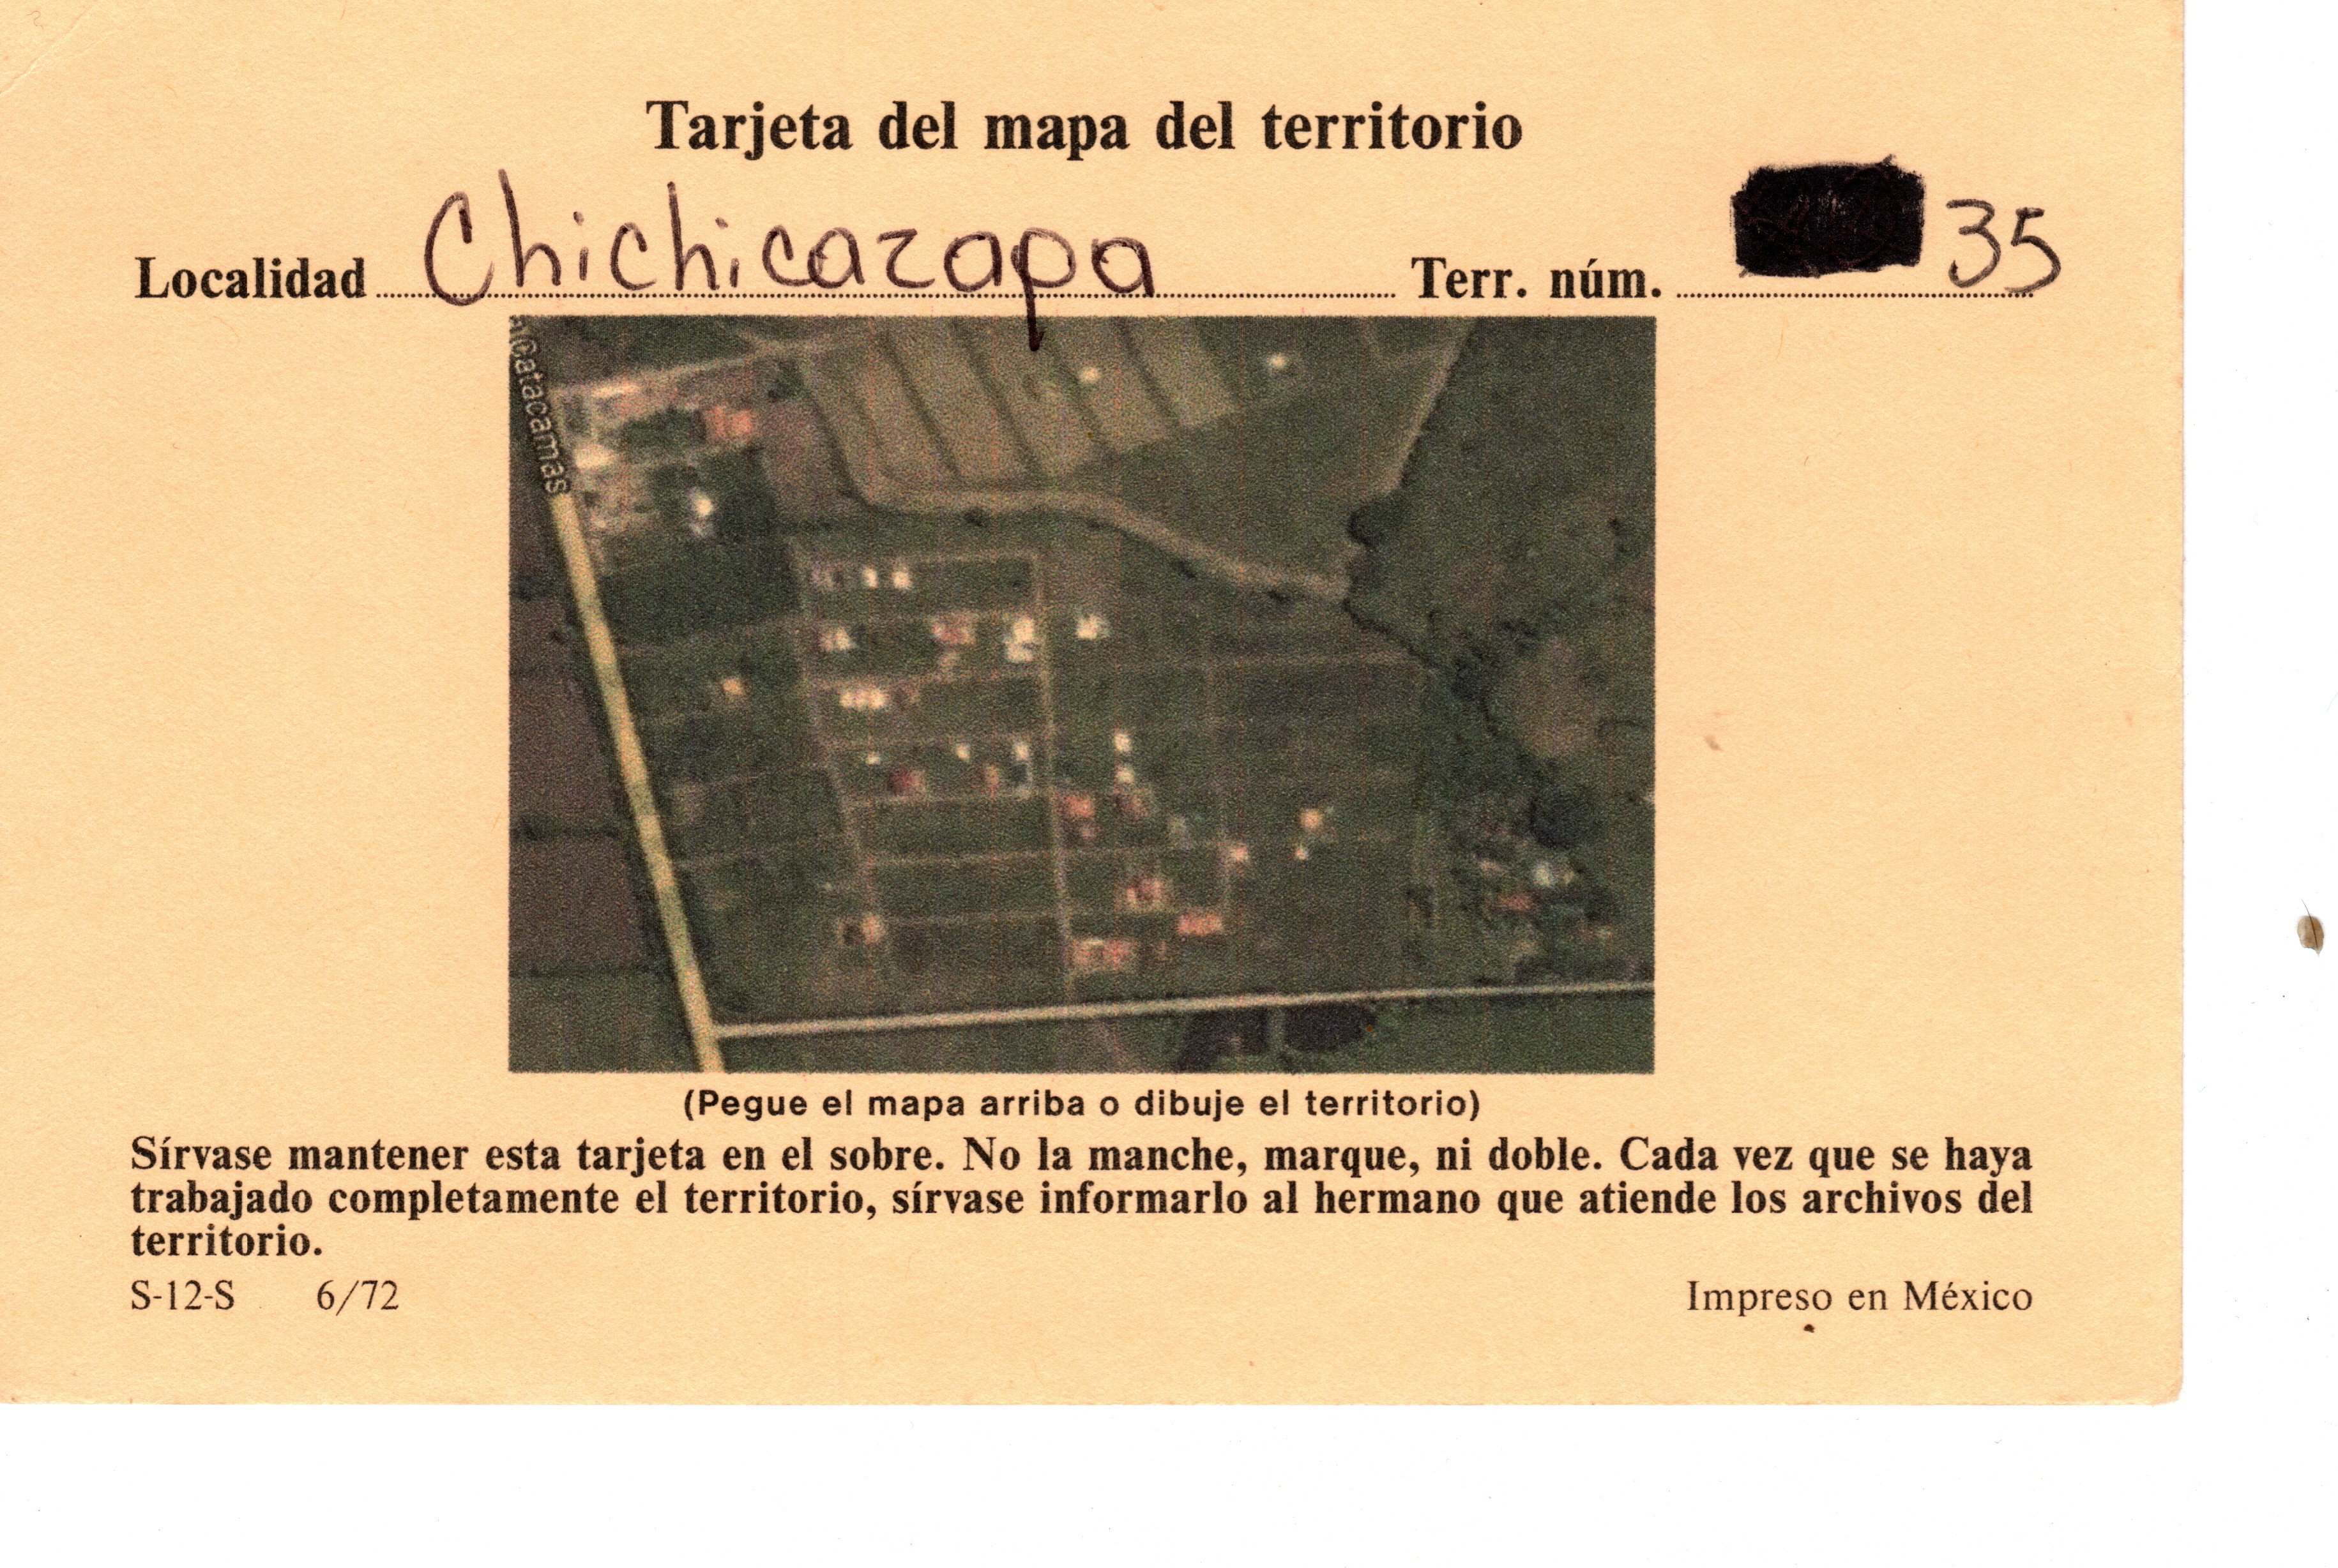 Tarjeta del mapa del territorio
Localidad Chichicazapa Terr. núm. 35
(Pegue el mapa arriba o dibuje el territorio)
Sírvase mantener esta tarjeta en el sobre. No la manche, marque, ni doble. Cada vez que se haya
trabajado completamente el territorio, sírvase informarlo al hermano que atiende los archivos del
territorio.
S-12-S 6/72
Impreso en México